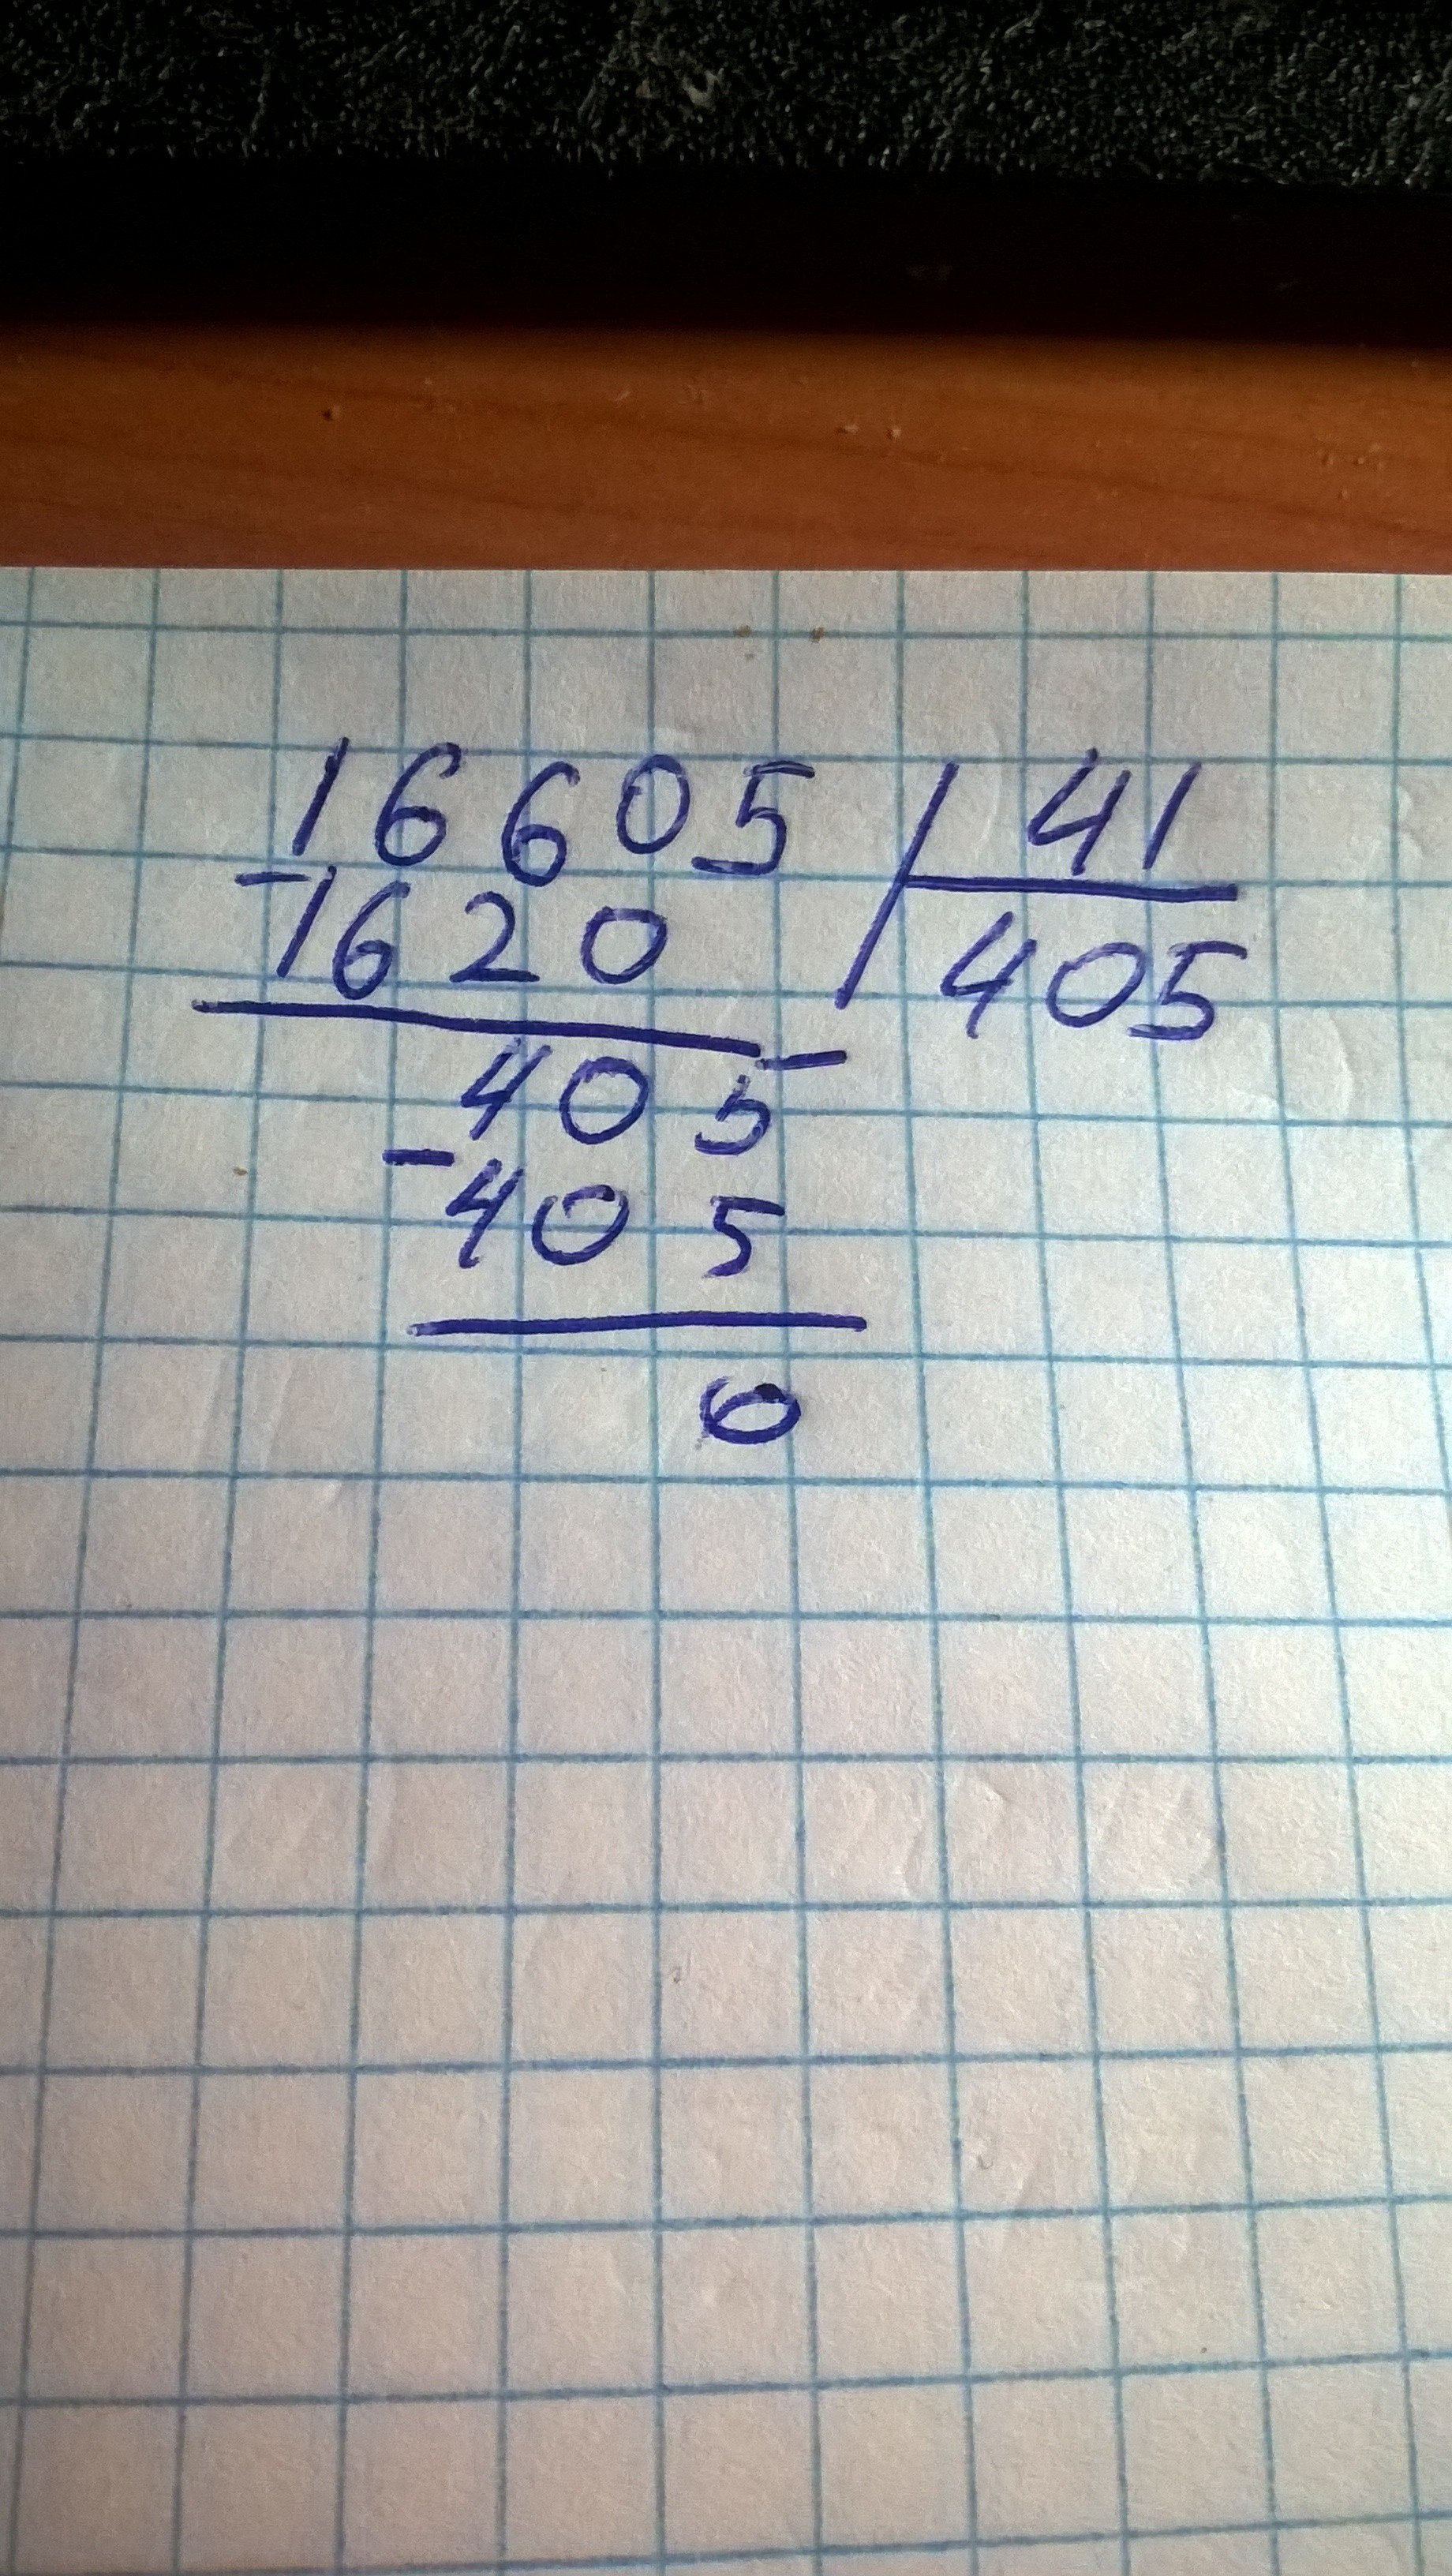 16605 | 41
-1620 | 405
405
-405
0